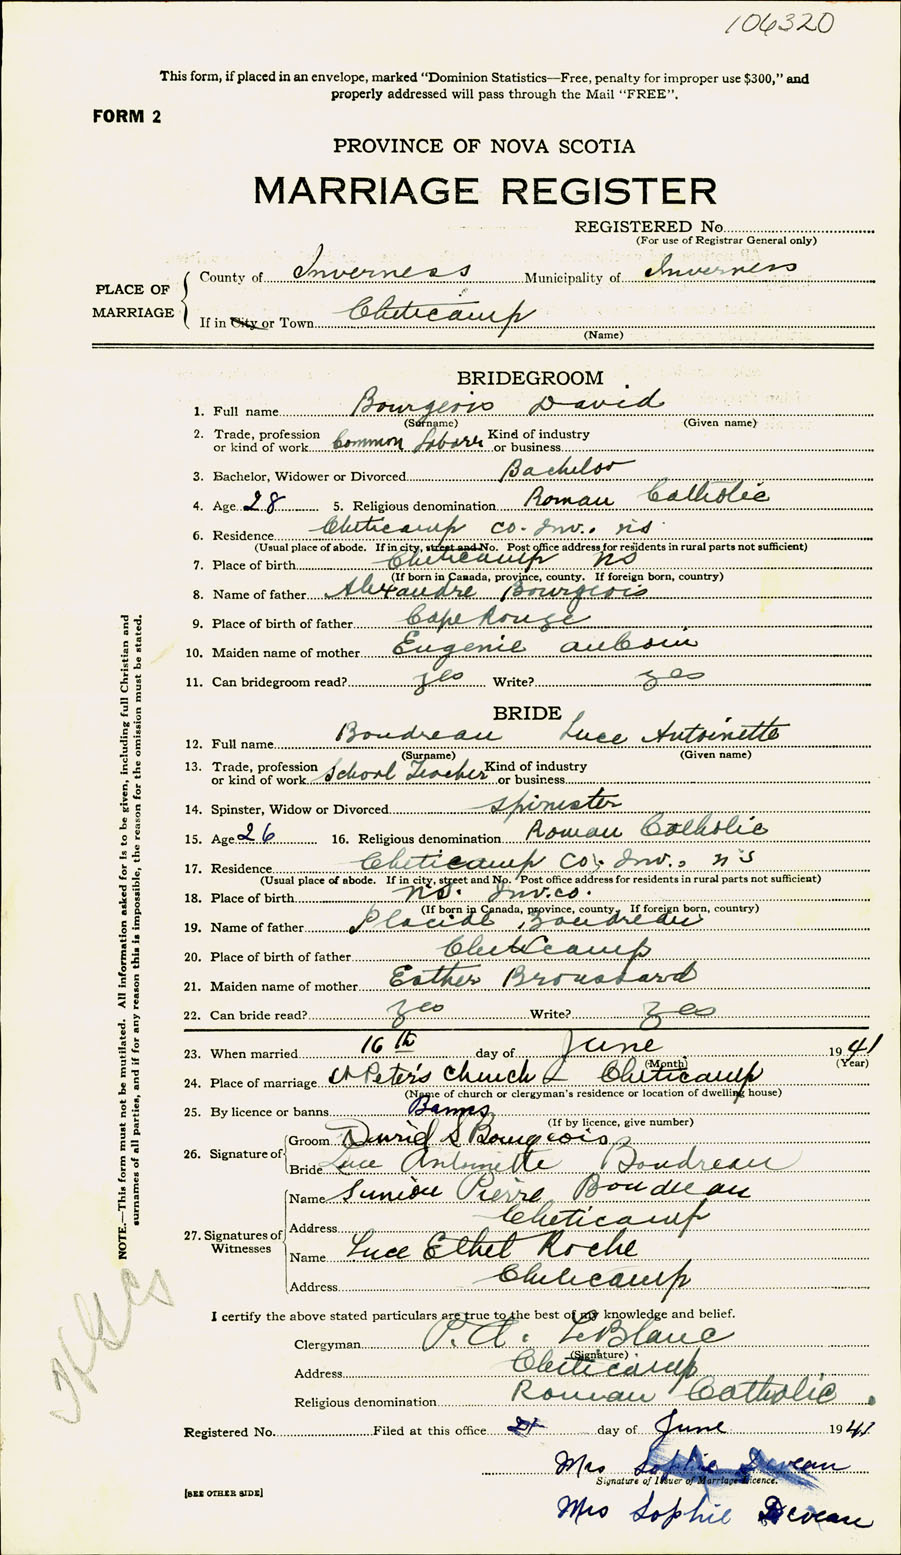 106320
This form, if placed in an envelope, marked "Dominion Statistics—Free, penalty for improper use $300," and
properly addressed will pass through the Mail "FREE".
FORM 2
PROVINCE OF NOVA SCOTIA
MARRIAGE REGISTER
REGISTERED No.
(For use of Registrar General only)
PLACE OF MARRIAGE
County of Inverness Municipality of Inverness
If in City or Town Cheticamp
(Name)
BRIDEGROOM
1. Full name Bourgeois David
(Surname) (Given name)
2. Trade, profession or kind of work Common Laborer Kind of industry or business
3. Bachelor, Widower or Divorced Bachelor
4. Age 28 5. Religious denomination Roman Catholic
6. Residence Cheticamp co. Inv., N S
(Usual place of abode. If in city, street and No. Post office address for residents in rural parts not sufficient)
7. Place of birth Cheticamp NS
(If born in Canada, province, county. If foreign born, country)
8. Name of father Alexandre Bourgeois
9. Place of birth of father Cape Rouge
10. Maiden name of mother Eugenie Aucoin
11. Can bridegroom read? yes Write? yes
BRIDE
12. Full name Boudreau Luce Antoinette
(Surname) (Given name)
13. Trade, profession or kind of work School Teacher Kind of industry or business
14. Spinster, Widow or Divorced Spinster
15. Age 26 16. Religious denomination Roman Catholic
17. Residence Cheticamp Co, Inv., N S
(Usual place of abode. If in city, street and No. Post office address for residents in rural parts not sufficient)
18. Place of birth N.S. Inv. co.
(If born in Canada, province, county. If foreign born, country)
19. Name of father Placide Boudreau
20. Place of birth of father Cheticamp
21. Maiden name of mother Esther Broussard
22. Can bride read? yes Write? yes
23. When married 16th day of June 1941
(Month) (Year)
24. Place of marriage St Peter's Church - Cheticamp
(Name of church or clergyman's residence or location of dwelling house)
25. By licence or banns Banns
(If by licence, give number)
26. Signature of
Groom David S Bourgeois
Bride Luce Antoinette Boudreau
27. Signatures of Witnesses
Name Pierre Boudreau
Address Cheticamp
Name Luce Ethel Roche
Address Cheticamp
I certify the above stated particulars are true to the best of my knowledge and belief.
Clergyman P. A. LeBlanc
(Signature)
Address Cheticamp
Religious denomination Roman Catholic.
Registered No. Filed at this office day of June 1941
Mrs Sophie Deveau
Signature of Issuer of Marriage Licence.
Mrs Sophie Deveau
[SEE OTHER SIDE]
NOTE.—This form must not be mutilated. All information asked for is to be given, including full Christian and
surnames of all parties, and if for any reason this is impossible, the reason for the omission must be stated.